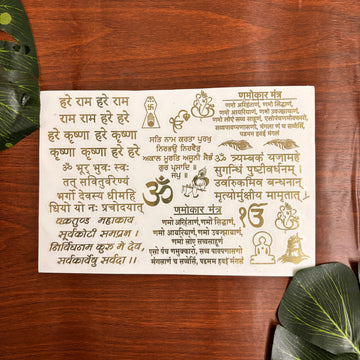 हरे राम हरे राम
राम राम हरे हरे
हरे कृष्णा हरे कृष्णा
कृष्णा कृष्णा हरे हरे
ॐ भूर् भुवः स्वः
तत् सवितुर्वरेण्यं
भर्गो देवस्य धीमहि
धियो यो नः प्रचोदयात्
वक्रतुण्ड महाकाय
सूर्यकोटी समप्रभ।
निर्विघ्नम कुरू मे देव,
सर्वकार्येषु सर्वदा।।
ੴ
ਸਤਿ ਨਾਮੁ ਕਰਤਾ ਪੁਰਖੁ
ਨਿਰਭਉ ਨਿਰਵੈਰੁ
ਅਕਾਲ ਮੂਰਤਿ ਅਜੂਨੀ ਸੈਭੰ
ਗੁਰ ਪ੍ਰਸਾਦਿ॥
ਜਪੁ॥
ॐ
णमोकार मंत्र
णमो अरिहंताणं, णमो सिद्धाणं,
णमो आयरियाणं, णमो उवज्झायाणं,
णमो लोए सव्व साहूणं, एसोपंचणमोक्कारो,
सव्वपावप्पणासणो, मंगला णं च सव्वेसिं,
पडमम हवई मंगलं
ॐ त्र्यम्बकं यजामहे
सुगन्धिं पुष्टीवर्धनम्।
उर्वारुकमिव बन्धनान्
मृत्योर्मुक्षीय मामृतात्
णमोकार मंत्र
णमो अरिहंताणं, णमो सिद्धाणं,
णमो आयरियाणं, णमो उवज्झायाणं,
णमो लोए सव्वसाहूणं
एसो पंच णमुक्कारो, सव्व पावपणासणो
मंगलाणं च सव्वेसिं, पडमम हवई मंगलं
ੴ